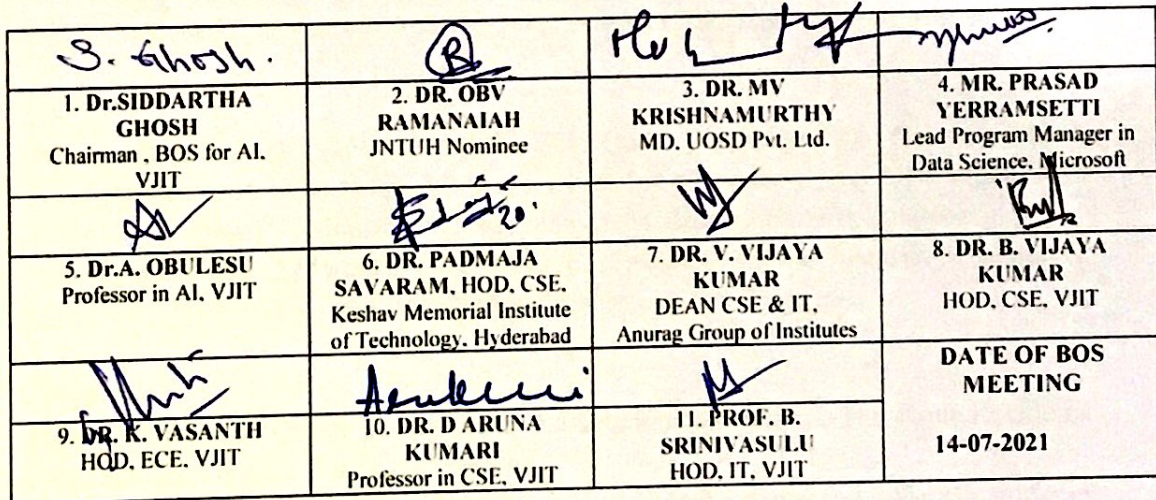 S. Ghosh.
1. Dr.SIDDARTHA
GHOSH
Chairman , BOS for AI.
VJIT
2. DR. OBV
RAMANAIAH
JNTUH Nominee
3. DR. MV
KRISHNAMURTHY
MD. UOSD Pvt. Ltd.
4. MR. PRASAD
YERRAMSETTI
Lead Program Manager in
Data Science. Microsoft
5. Dr.A. OBULESU
Professor in AI. VJIT
6. DR. PADMAJA
SAVARAM. HOD. CSE.
Keshav Memorial Institute
of Technology. Hyderabad
7. DR. V. VIJAYA
KUMAR
DEAN CSE & IT.
Anurag Group of Institutes
8. DR. B. VIJAYA
KUMAR
HOD. CSE. VJIT
9. DR. K. VASANTH
HOD. ECE. VJIT
10. DR. D ARUNA
KUMARI
Professor in CSE. VJIT
11. PROF. B.
SRINIVASULU
HOD. IT. VJIT
DATE OF BOS
MEETING
14-07-2021